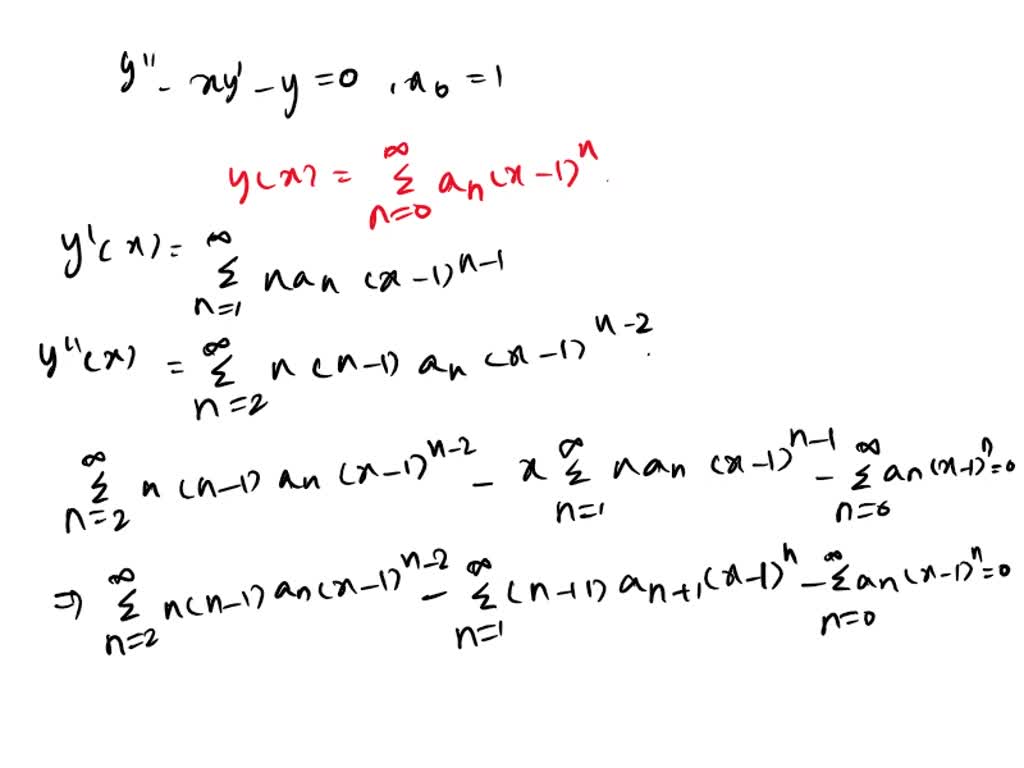 y'' - xy' - y = 0 , x₀ = 1
y(x) = ∑_{n=0}^{∞} aₙ (x-1)ⁿ
y'(x) = ∑_{n=1}^{∞} n aₙ (x-1)^{n-1}
y''(x) = ∑_{n=2}^{∞} n (n-1) aₙ (x-1)^{n-2}
∑_{n=2}^{∞} n (n-1) aₙ (x-1)^{n-2} - x ∑_{n=1}^{∞} n aₙ (x-1)^{n-1} - ∑_{n=0}^{∞} aₙ (x-1)ⁿ = 0
⇒ ∑_{n=2}^{∞} n(n-1) aₙ (x-1)^{n-2} - ∑_{n=1}^{∞} (n+1) a_{n+1} (x-1)ⁿ - ∑_{n=0}^{∞} aₙ (x-1)ⁿ = 0